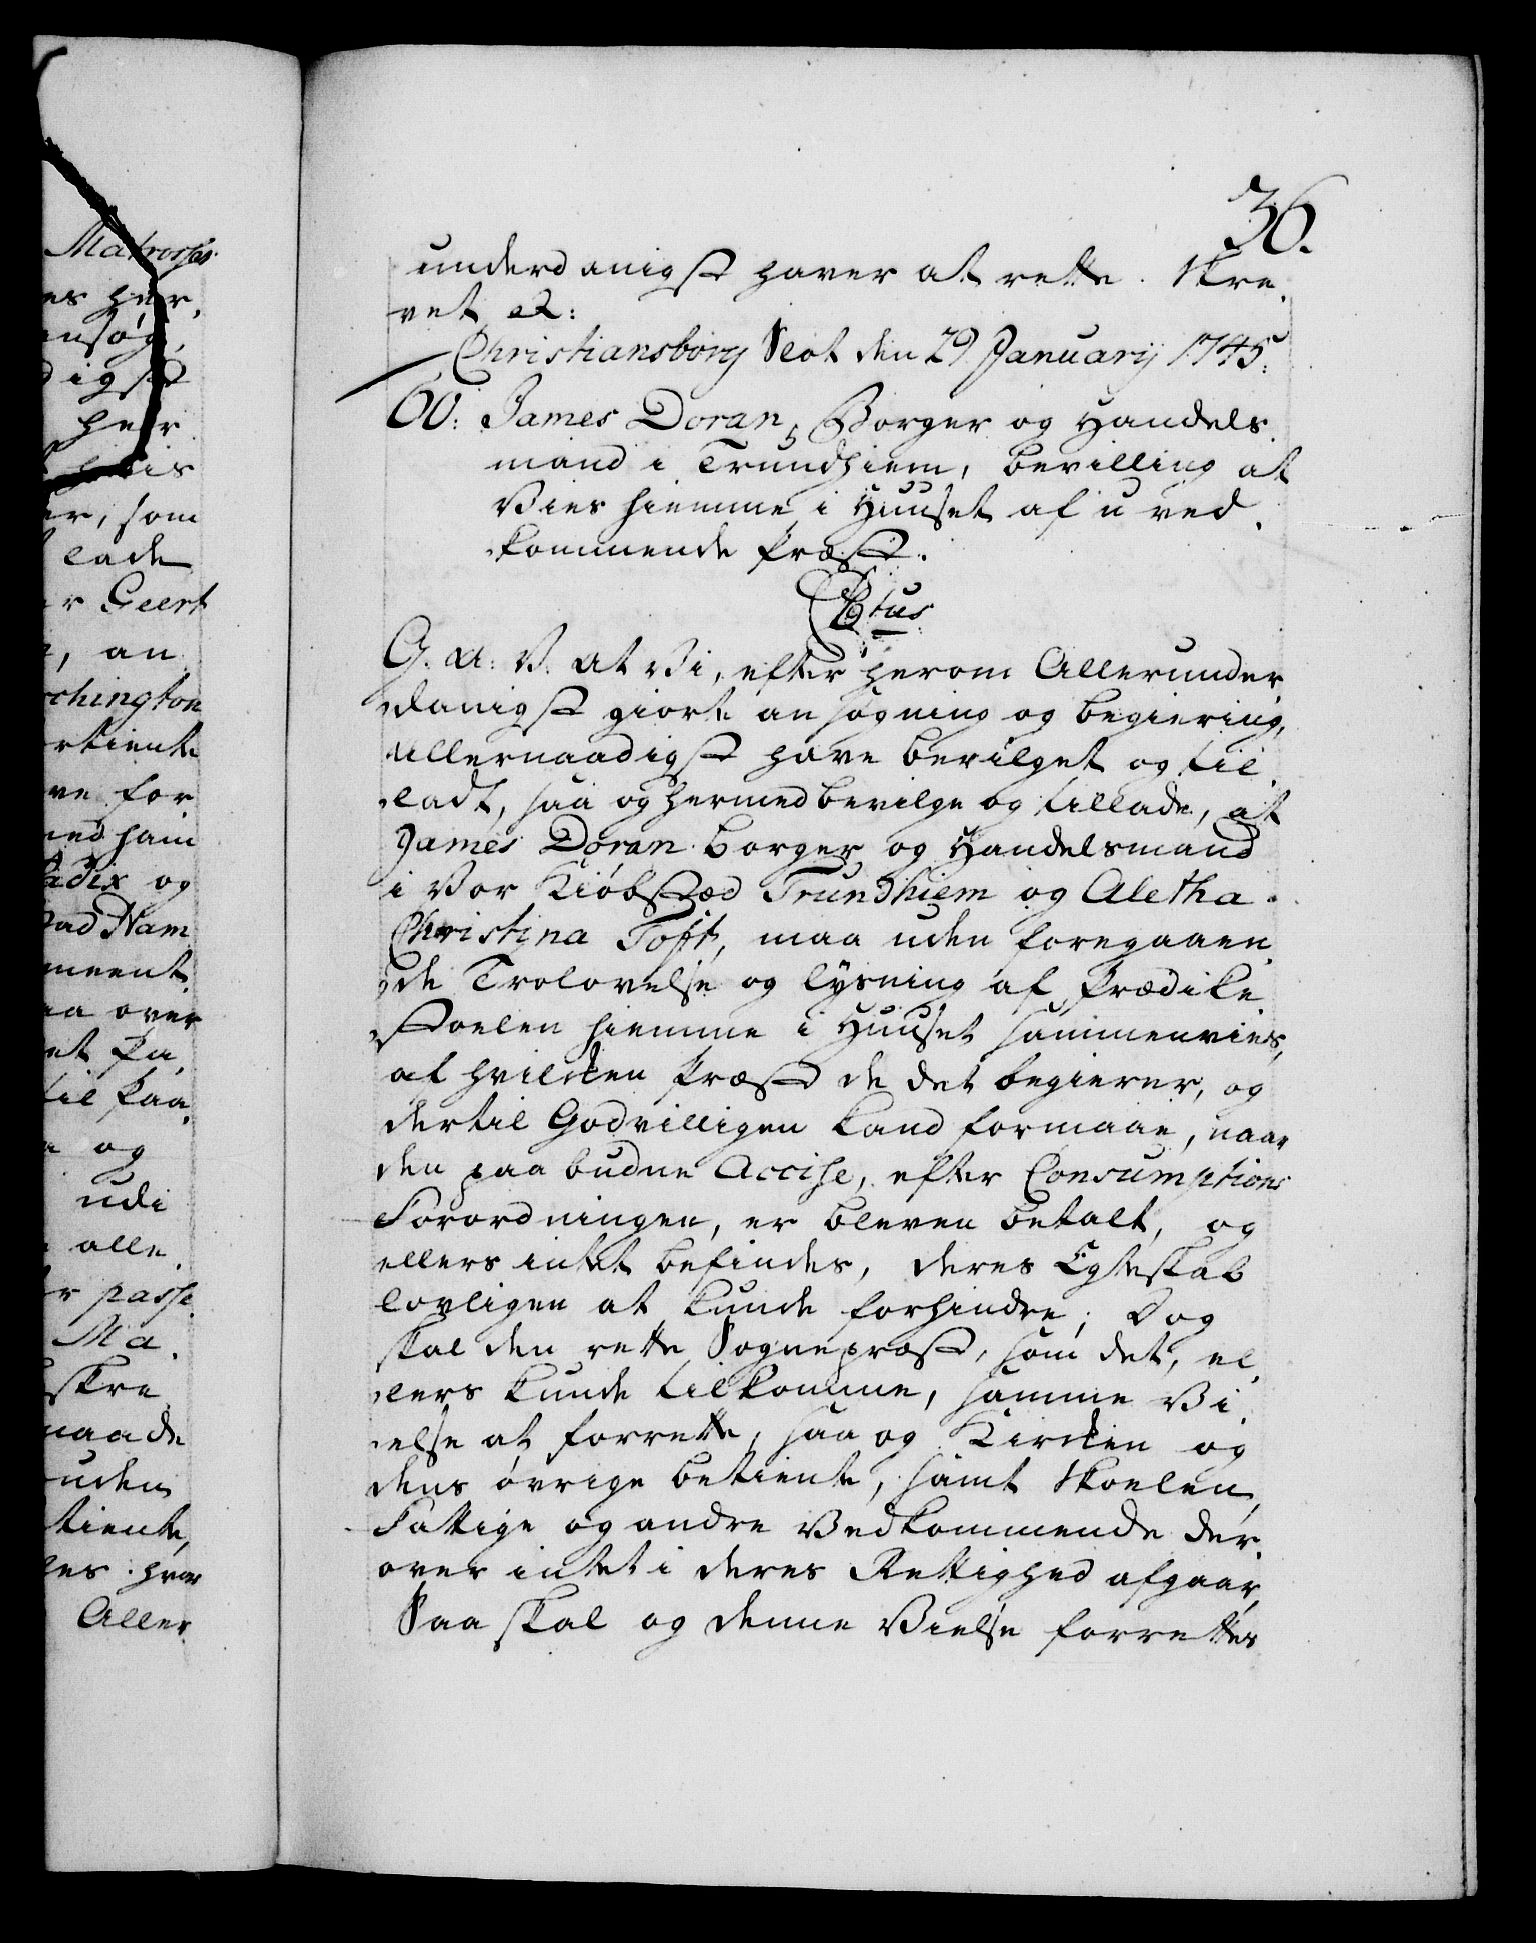 36.
underdanigst haver at rette. Skre,
vet etc:
Christiansborg Slot den 29 Januarij 1745.
W: James Doran, Borger og Handels,
mand i Trundhiem, bevilling at
Vies hiemme i Huuset af u ved,
kommende Præst.
Ctus
G. A: V. At Vi, efter herom Allerunder,
danigst giorte ansøgning og begiering,
allernaadigst have bevilget og til,
ladt, saa og hermed bevilge og tillade, at
James Doran Borger og Handelsmand
i Vor Kiøbstæd Trundhiem og Aletha
Christina Tofft, maa uden foregaaen,
de Trolovelse og lysning af Prædike
Stoelen hiemme i Huuset sammenvies,
af hvilcken Præst de det begierer, og
dertil Godvilligen kand formaae, naar
den paabudne Accise, efter Consumptions
Forordningen, er bleven betalt, og
ellers intet befindes, deres Egteskab
lovligen at kunde forhindre; Dog
skal den rette Sognepræst, som det, el,
lers kunde tilkomme, samme Vi,
else at forrette, saa og Kircken og
dens øvrige betiente, samt Skoelen,
Fattige og andre Vedkommende der,
over intet i deres Rettighed afgaar,
Saa skal og denne Vielse forrettes
Matrosser
es her,
ansøg,
digst
her
er, som
lade
r Geert
, an
chington
rtiente
ve for
med ham
Cadix og
ad Nam
meent
aa over
et Pa,
til Paa,
og
udi
alle
r passe
Ma,
skre
naade
uden
tiente,
les hvor
Aller